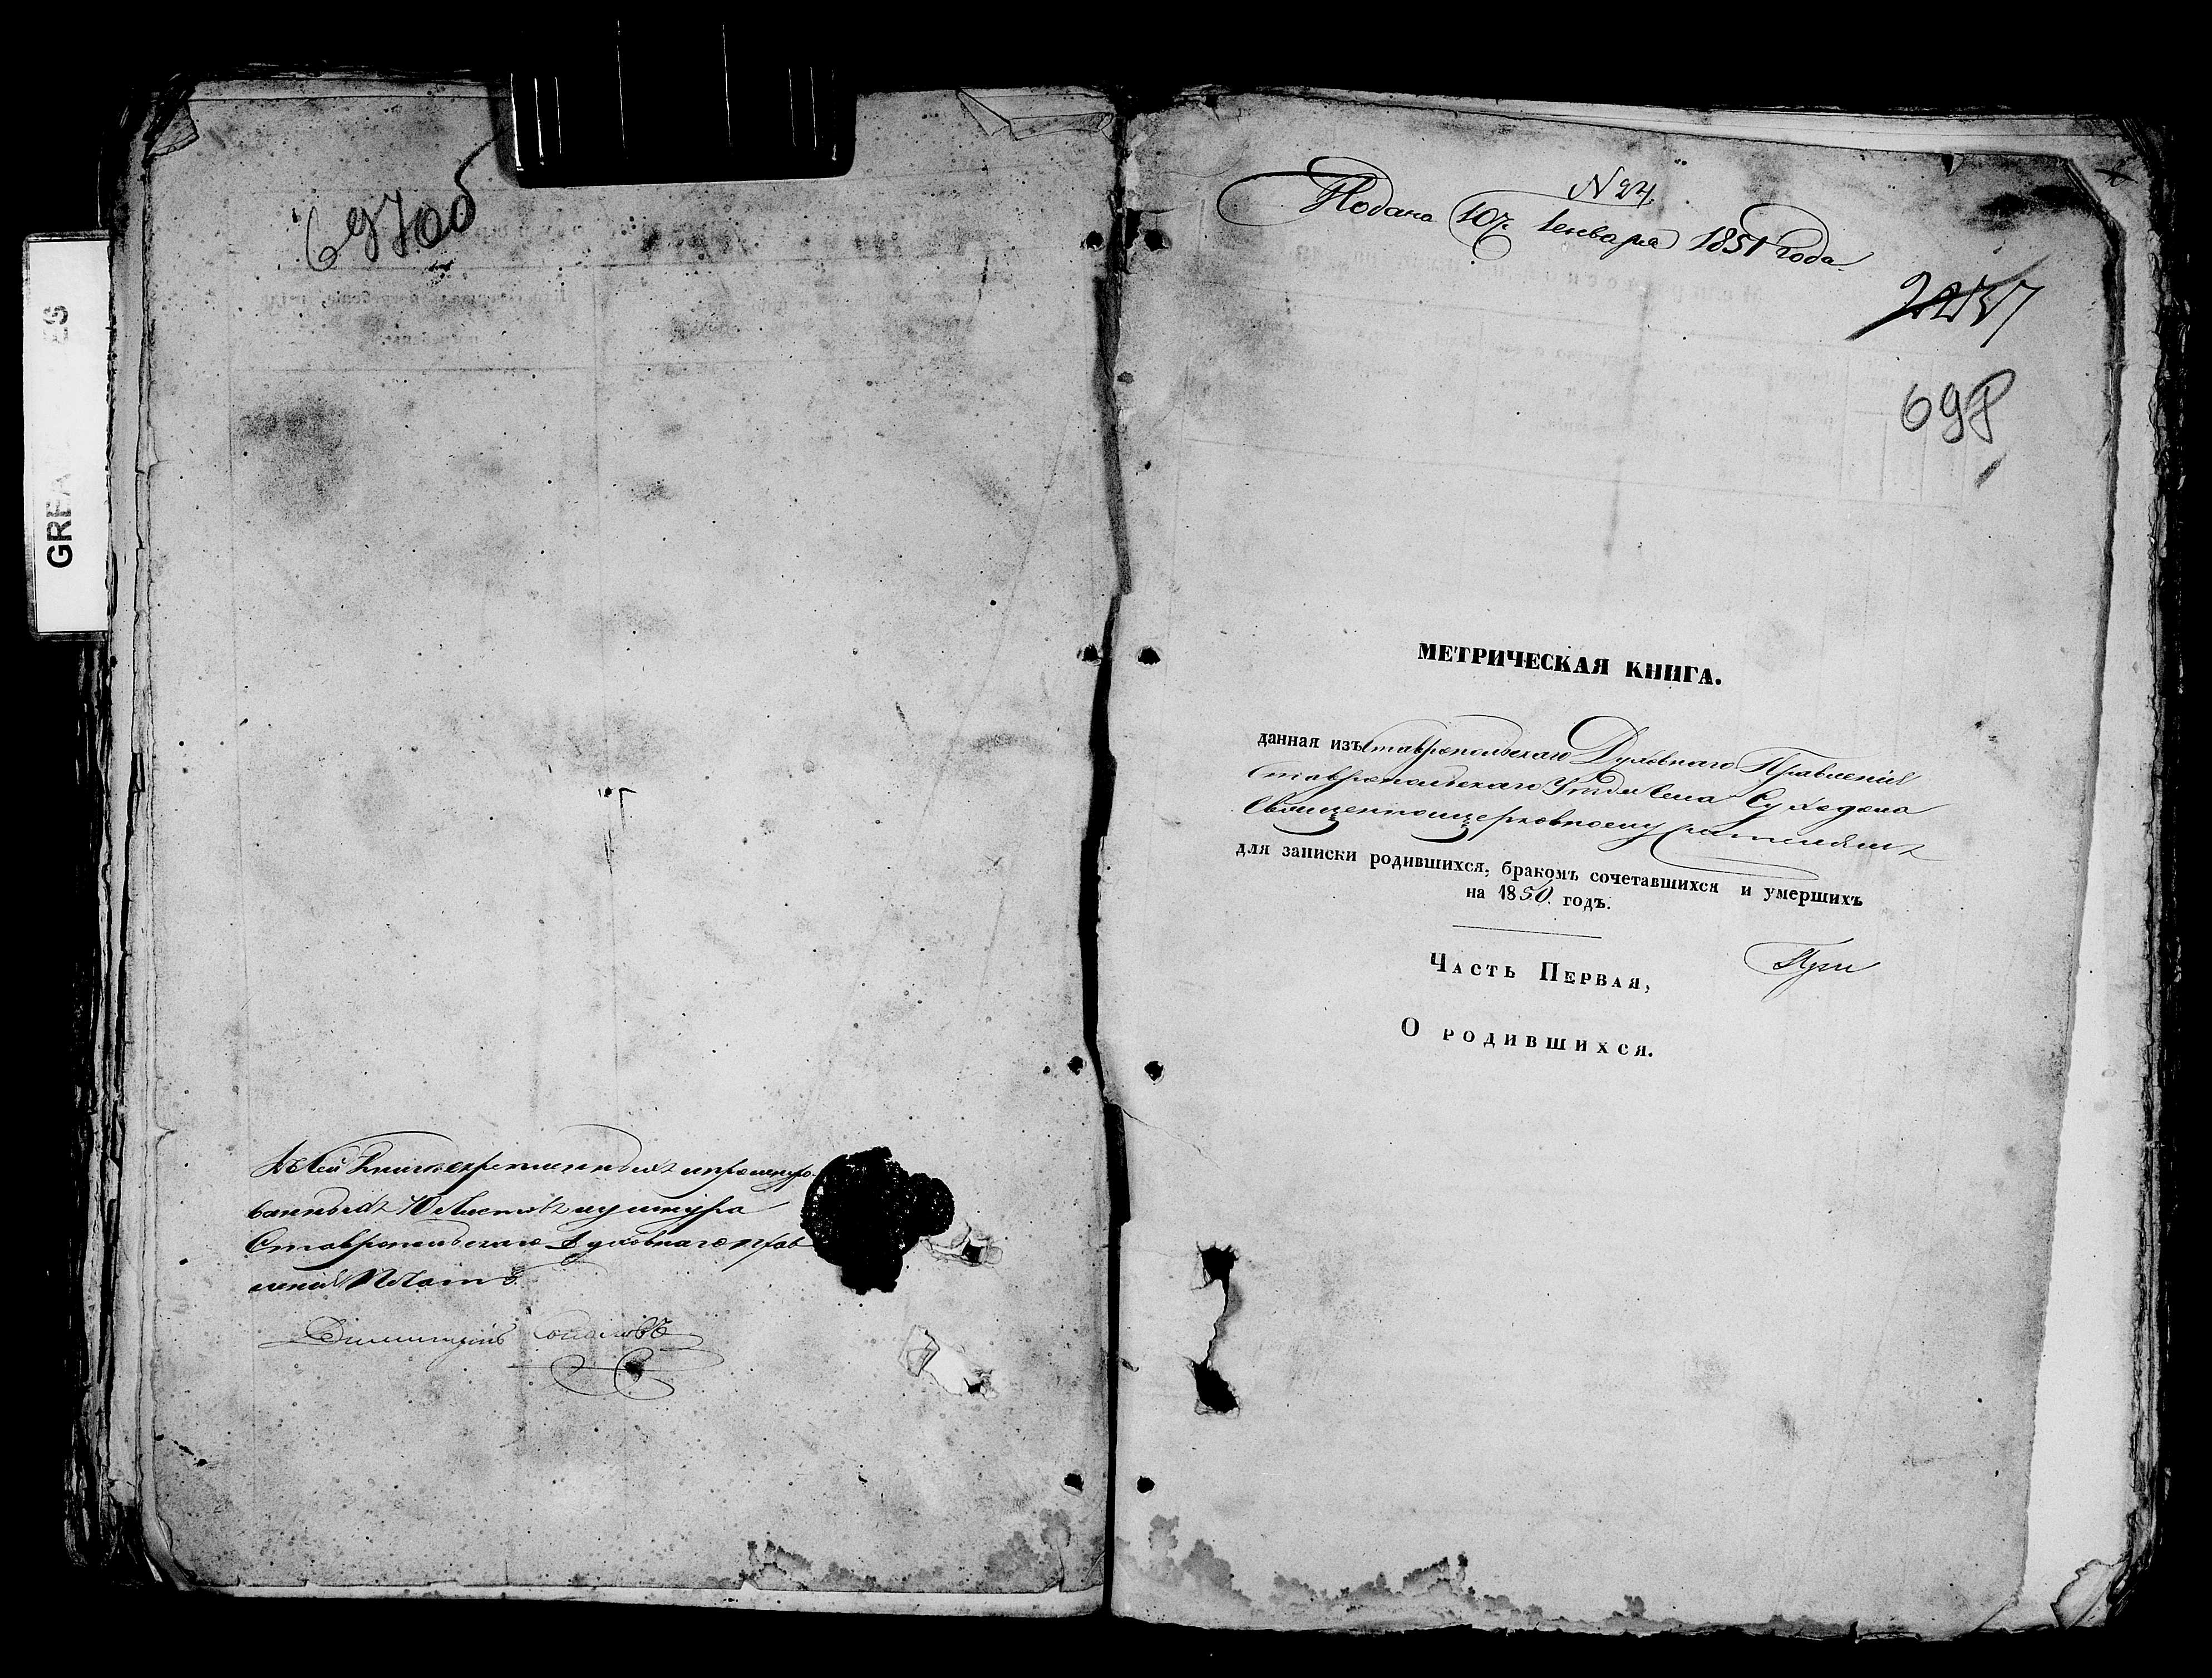 697об
Въ сей Книге скрепленныхъ и прошнуро-
ванныхъ 10 Листовъ и у шнура
Ставропольскаго Духовнаго прав
ления Печать
Димитрий Соколовъ
GREA ES
N 24.
Подана 10 ч. Генваря 1851 года.
2257
698
МЕТРИЧЕСКАЯ КНИГА.
данная изъ Ставропольскаго Духовнаго Правления
Ставропольскаго Уезда Села Суходола
Священноцерковнослужителямъ
для записки родившихся, бракомъ сочетавшихся и умершихъ
на 1850. годъ.
Часть Первая,
О родившихся.